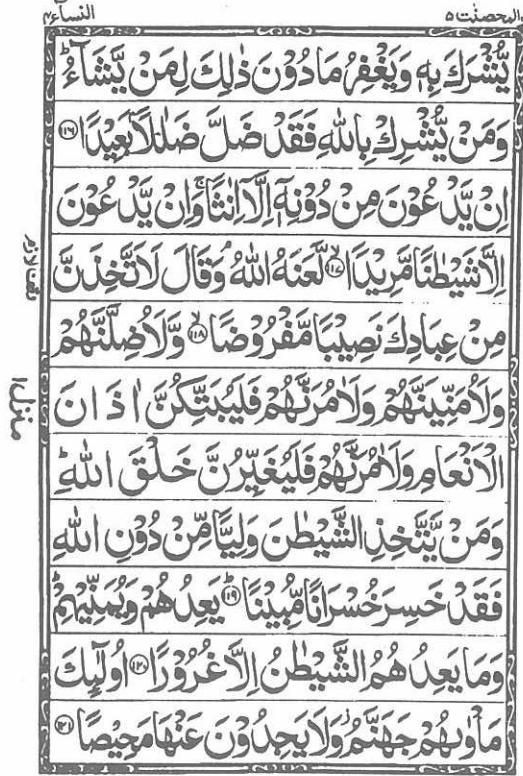 المحصنٰت ۵
النسآء ۴
يُّشْرَكَ بِهٖ وَيَغْفِرُ مَا دُوْنَ ذٰلِكَ لِمَنْ يَّشَآءُ ؕ
وَمَنْ يُّشْرِكْ بِاللّٰهِ فَقَدْ ضَلَّ ضَلٰلًاۢ بَعِيْدًا ۱۱۶
اِنْ يَّدْعُوْنَ مِنْ دُوْنِهٖۤ اِلَّاۤ اِنٰثًا ۚ وَاِنْ يَّدْعُوْنَ
اِلَّا شَيْطٰنًا مَّرِيْدًا ۙ ۱۱۷ لَّعَنَهُ اللّٰهُ ۘ وَقَالَ لَاَتَّخِذَنَّ
مِنْ عِبَادِكَ نَصِيْبًا مَّفْرُوْضًا ۙ ۱۱۸ وَّلَاُضِلَّنَّهُمْ
وَلَاُمَنِّيَنَّهُمْ وَلَاٰمُرَنَّهُمْ فَلَيُبَتِّكُنَّ اٰذَانَ
الْاَنْعَامِ وَلَاٰمُرَنَّهُمْ فَلَيُغَيِّرُنَّ خَلْقَ اللّٰهِ ؕ
وَمَنْ يَّتَّخِذِ الشَّيْطٰنَ وَلِيًّا مِّنْ دُوْنِ اللّٰهِ
فَقَدْ خَسِرَ خُسْرَانًا مُّبِيْنًا ؕ ۱۱۹ يَعِدُهُمْ وَيُمَنِّيْهِمْ ؕ
وَمَا يَعِدُهُمُ الشَّيْطٰنُ اِلَّا غُرُوْرًا ۱۲۰ اُولٰٓئِكَ
مَاْوٰىهُمْ جَهَنَّمُ ؗ وَلَا يَجِدُوْنَ عَنْهَا مَحِيْصًا ۱۲۱
وقف لازم
منزل ۱